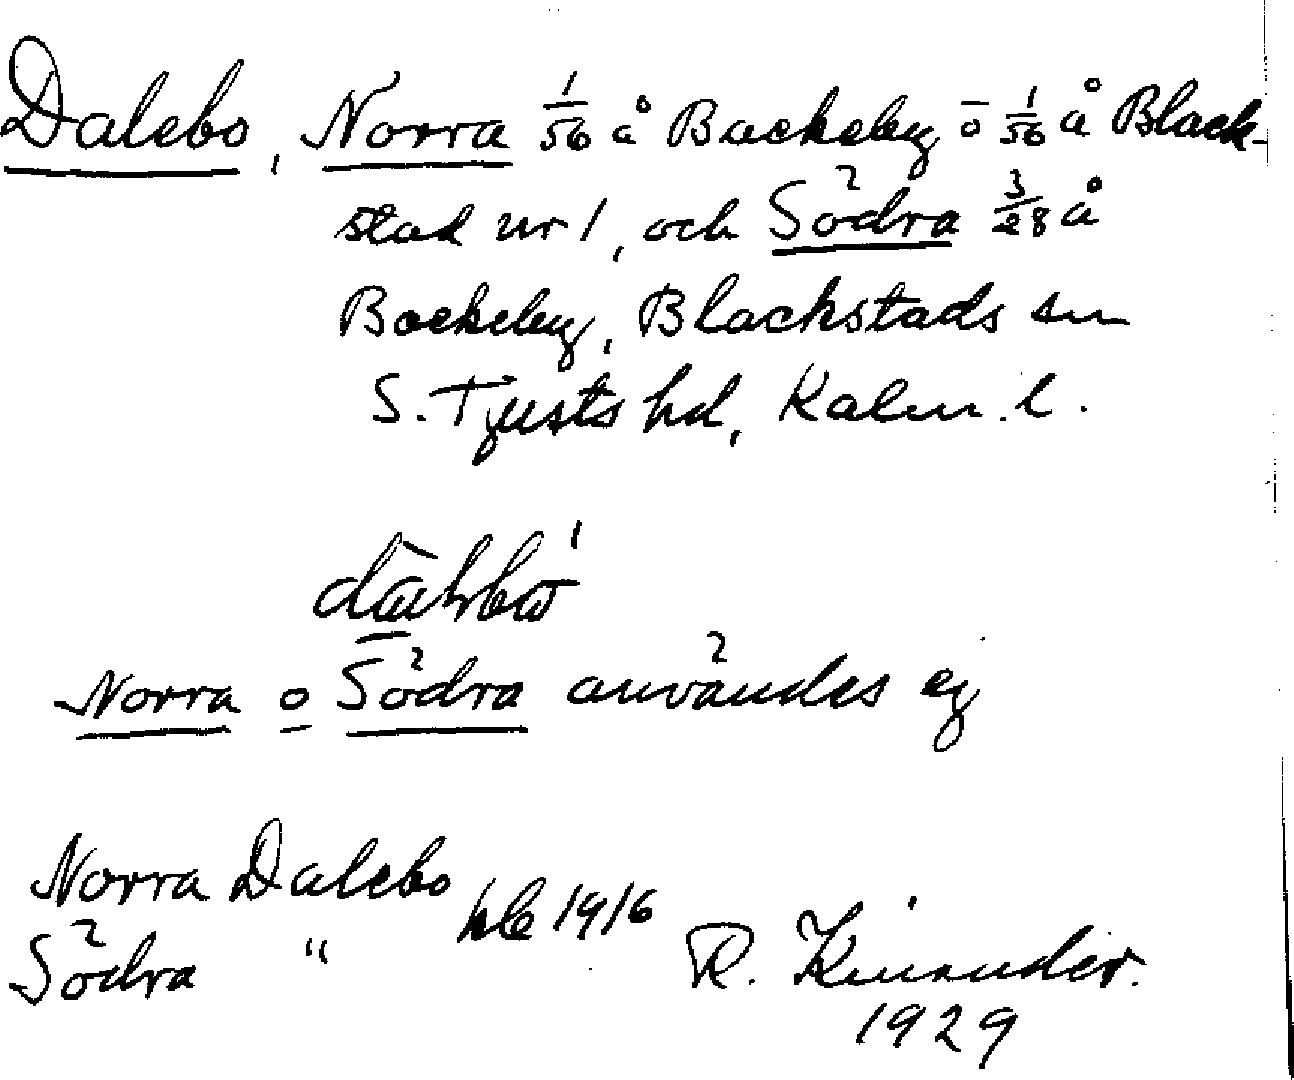 Dalebo, Norra 1/56 å Backeby o 1/56 å Black-
stad nr 1, och Södra 3/28 å
Backeby, Blackstads sn
S. Tjusts hd, Kalm. l.
Norra o Södra användes ej
Norra Dalebo
Södra " hle 1916
R. Kinander.
1929